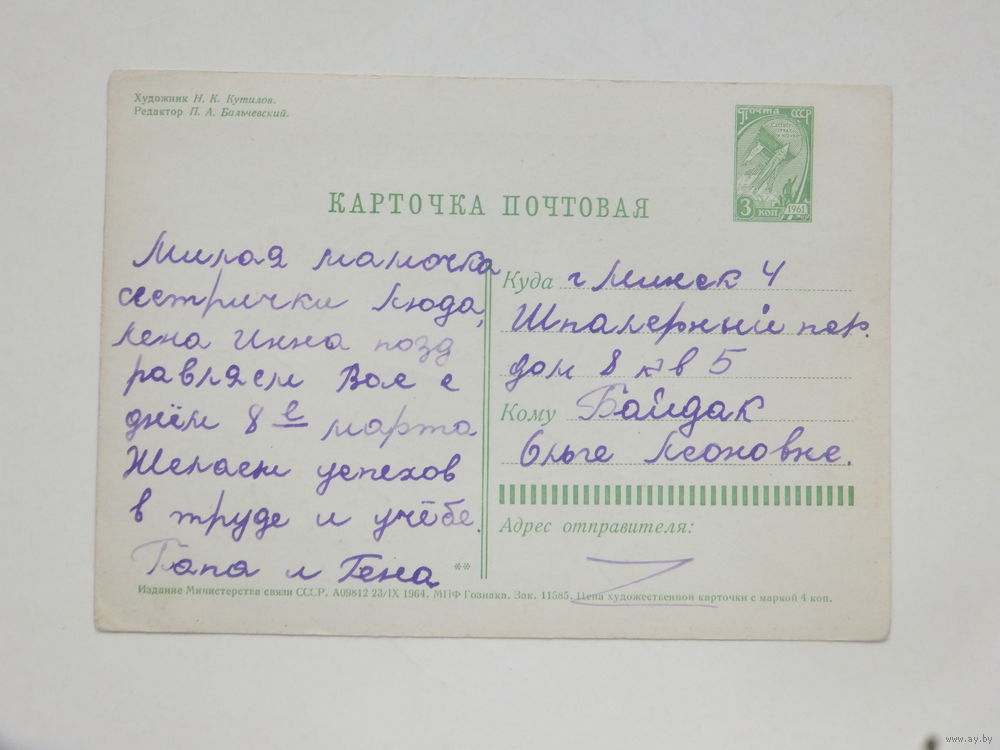 Художник Н. К. Кутилов.
Редактор П. А. Бальчевский.
ПОЧТА СССР
3 КОП
1961
КАРТОЧКА ПОЧТОВАЯ
Милая мамочка
сестрички Люда,
Лена Инна позд
равляем Вас с
днём 8 е марта
Желаем успехов
в труде и учёбе.
Папа и Гена
**
Куда г Минск 4
Шпалерный пер.
дом 8 кв 5
Кому Байдак
Ольге Леоновне.
Адрес отправителя:
Издание Министерства связи СССР. А09812 23/IX 1964. МПФ Гознака. Зак. 11585. Цена художественной карточки с маркой 4 коп.
www.ay.by